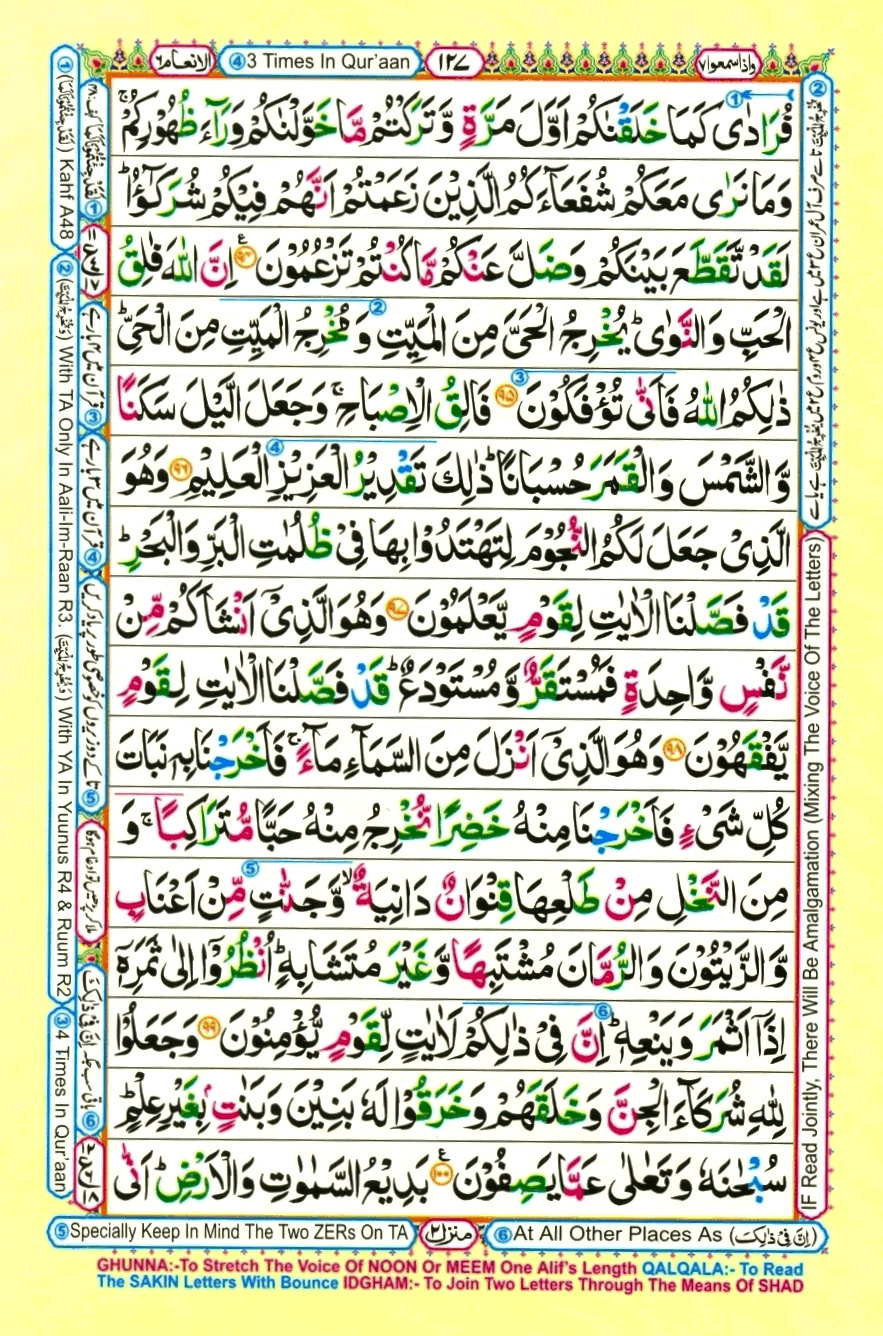 واذاسمعوا٧
١٢٧
④3 Times In Qur'aan
الانعام٦
فُرَادٰى كَمَا خَلَقْنٰكُمْ اَوَّلَ مَرَّةٍ وَّ تَرَكْتُمْ مَّا خَوَّلْنٰكُمْ وَرَآءَ ظُهُوْرِكُمْ ۚ
وَمَا نَرٰى مَعَكُمْ شُفَعَآءَكُمُ الَّذِيْنَ زَعَمْتُمْ اَنَّهُمْ فِيْكُمْ شُرَكٰٓؤُا ؕ
لَقَدْ تَّقَطَّعَ بَيْنَكُمْ وَضَلَّ عَنْكُمْ مَّا كُنْتُمْ تَزْعُمُوْنَ ۹۴ اِنَّ اللّٰهَ فَلِقُ
الْحَبِّ وَالنَّوٰى ؕ يُخْرِجُ الْحَىَّ مِنَ الْمَيِّتِ وَ مُخْرِجُ الْمَيِّتِ مِنَ الْحَىِّ ؕ
ذٰلِكُمُ اللّٰهُ فَاَنّٰى تُؤْفَكُوْنَ ۹۵ فَالِقُ الْاِصْبَاحِ ۚ وَجَعَلَ الَّيْلَ سَكَنًا
وَّالشَّمْسَ وَالْقَمَرَ حُسْبَانًا ؕ ذٰلِكَ تَقْدِيْرُ الْعَزِيْزِ الْعَلِيْمِ ۹۶ وَهُوَ
الَّذِىْ جَعَلَ لَكُمُ النُّجُوْمَ لِتَهْتَدُوْا بِهَا فِىْ ظُلُمٰتِ الْبَرِّ وَالْبَحْرِ ؕ
قَدْ فَصَّلْنَا الْاٰيٰتِ لِقَوْمٍ يَّعْلَمُوْنَ ۹۷ وَهُوَ الَّذِىْٓ اَنْشَاَكُمْ مِّنْ
نَّفْسٍ وَّاحِدَةٍ فَمُسْتَقَرٌّ وَّ مُسْتَوْدَعٌ ؕ قَدْ فَصَّلْنَا الْاٰيٰتِ لِقَوْمٍ
يَّفْقَهُوْنَ ۹۸ وَهُوَ الَّذِىْٓ اَنْزَلَ مِنَ السَّمَآءِ مَآءً ۚ فَاَخْرَجْنَا بِهٖ نَبَاتَ
كُلِّ شَىْءٍ فَاَخْرَجْنَا مِنْهُ خَضِرًا نُّخْرِجُ مِنْهُ حَبًّا مُّتَرَاكِبًا ۚ وَ
مِنَ النَّخْلِ مِنْ طَلْعِهَا قِنْوَانٌ دَانِيَةٌ ۙ وَّجَنّٰتٍ مِّنْ اَعْنَابٍ
وَّالزَّيْتُوْنَ وَالرُّمَّانَ مُشْتَبِهًا وَّغَيْرَ مُتَشَابِهٍ ؕ اُنْظُرُوْٓا اِلٰى ثَمَرِهٖٓ
اِذَآ اَثْمَرَ وَيَنْعِهٖ ؕ اِنَّ فِىْ ذٰلِكُمْ لَاٰيٰتٍ لِّقَوْمٍ يُّؤْمِنُوْنَ ۹۹ وَجَعَلُوْا
لِلّٰهِ شُرَكَآءَ الْجِنَّ وَخَلَقَهُمْ وَخَرَقُوْا لَهٗ بَنِيْنَ وَبَنٰتٍۢ بِغَيْرِ عِلْمٍ ؕ
سُبْحٰنَهٗ وَ تَعٰلٰى عَمَّا يَصِفُوْنَ ۱۰۰ بَدِيْعُ السَّمٰوٰتِ وَالْاَرْضِ ؕ اَنّٰى
① Kahf A48
② (وَتُخْرِجُ الْمَيِّتَ) With TA Only In Aali-Im-Raan R3. (وَيُخْرِجُ الْمَيِّتَ) With YA In Yuunus R4 & Ruum R2
③4 Times In Qur'aan
IF Read Jointly, There Will Be Amalgamation (Mixing The Voice Of The Letters)
⑤Specially Keep In Mind The Two ZERs On TA
منزل٢
⑥At All Other Places As (اِنَّ فِىْ ذٰلِكَ)
GHUNNA:-To Stretch The Voice Of NOON Or MEEM One Alif's Length QALQALA:- To Read
The SAKIN Letters With Bounce IDGHAM:- To Join Two Letters Through The Means Of SHAD